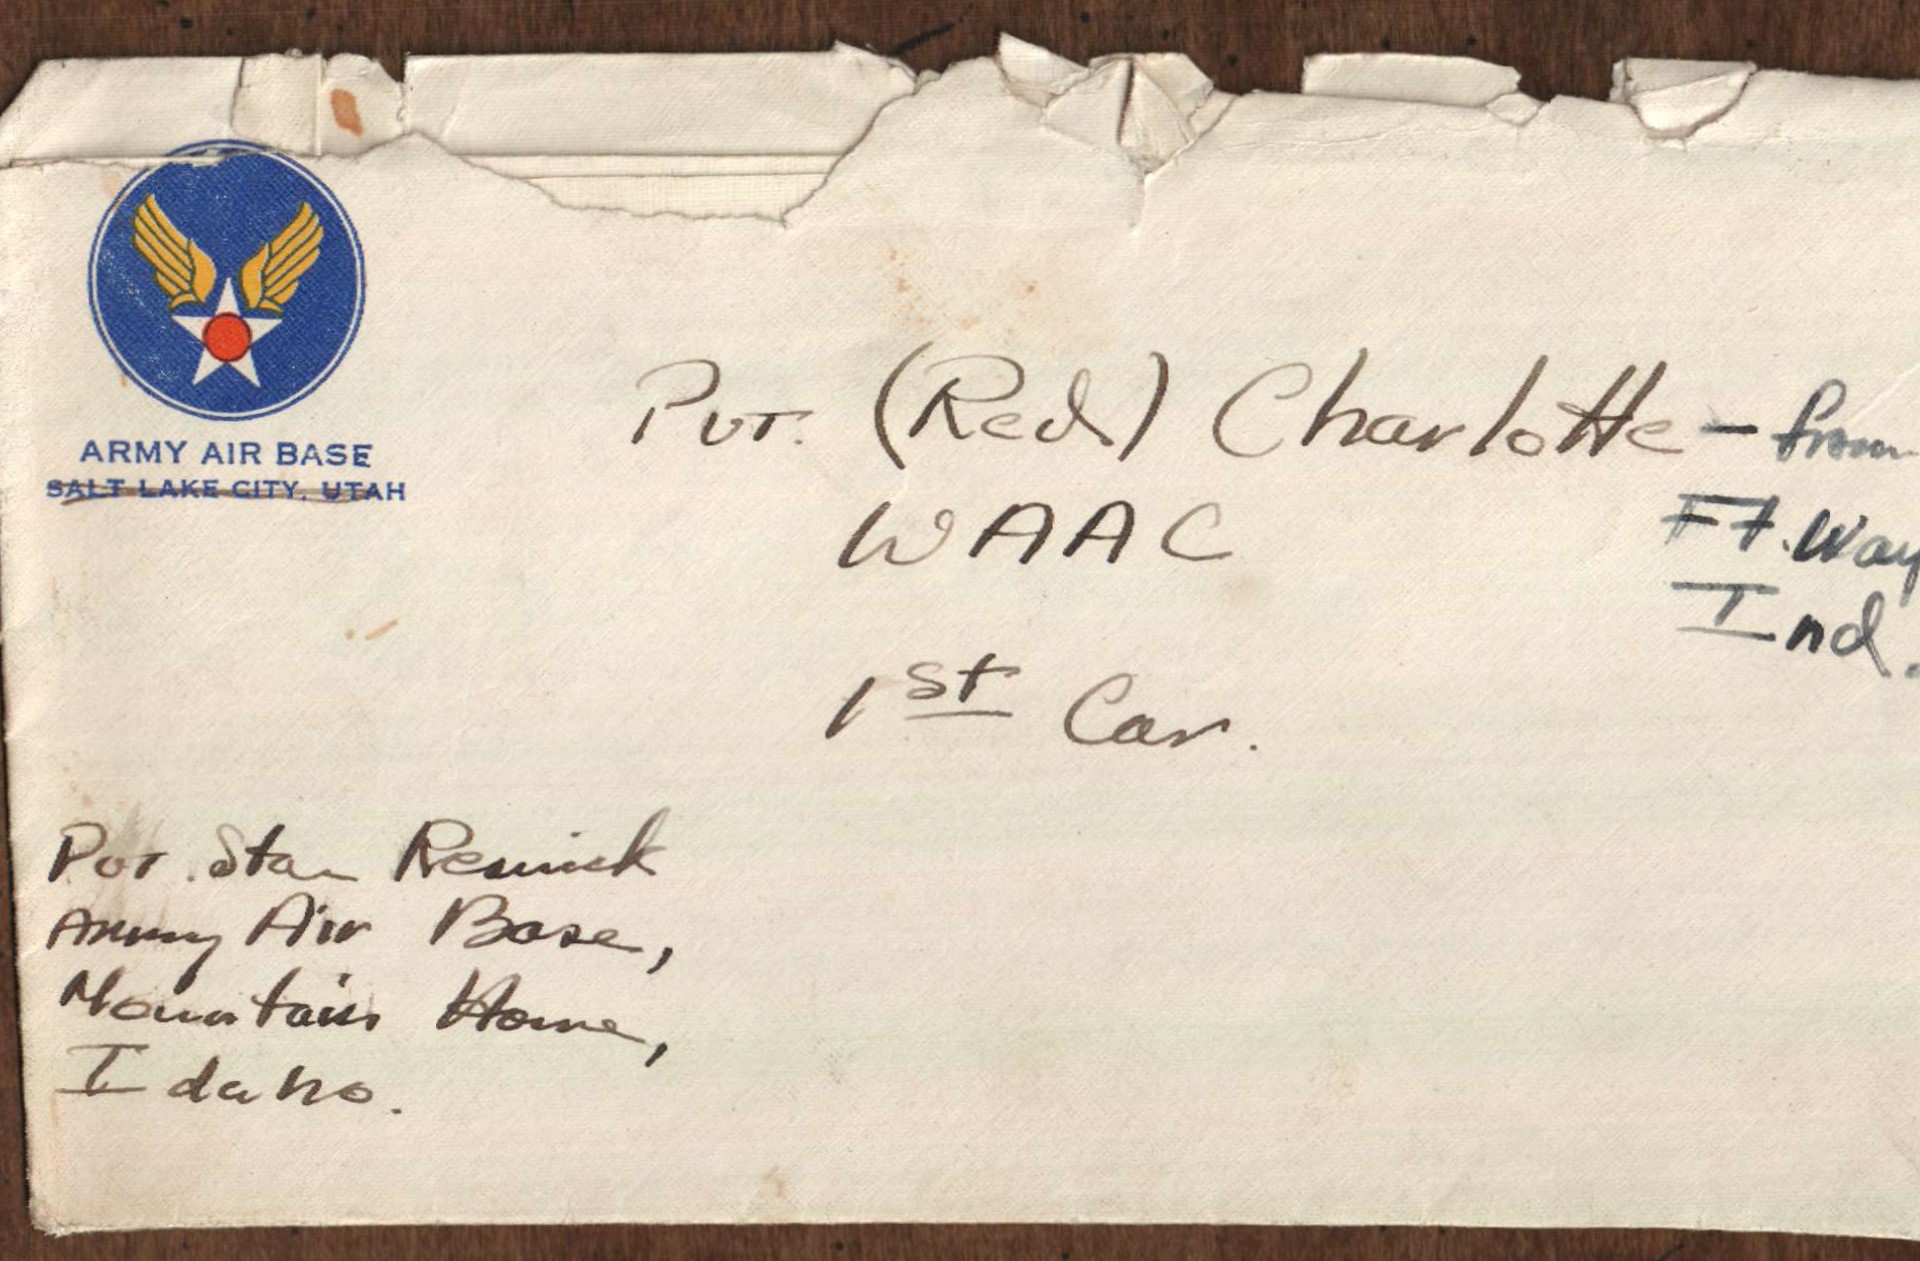 ARMY AIR BASE
SALT LAKE CITY, UTAH
Pvt. (Red) Charlotte - from
WAAC
Ft. Way
Ind.
1st Car.
Pvt. Stan Resnick
Army Air Base,
Mountain Home,
Idaho.